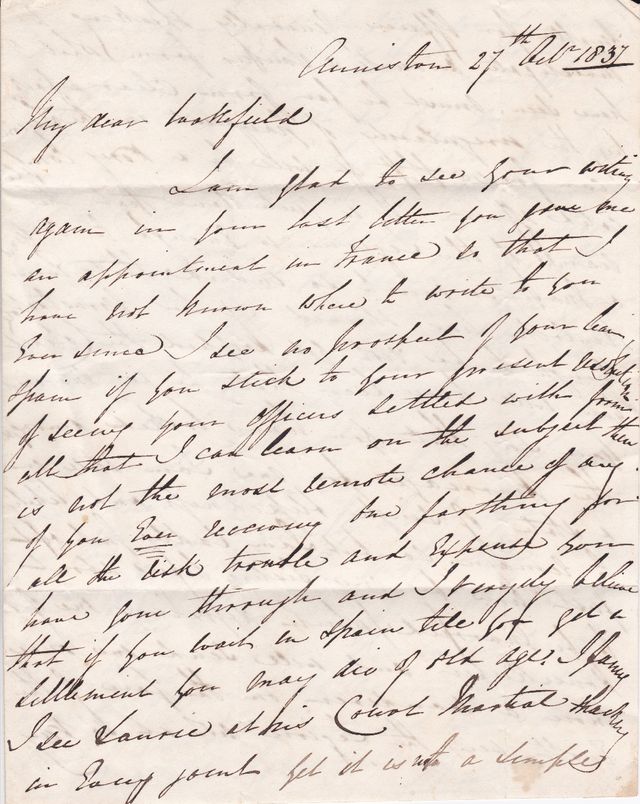 Anniston 27th Octr 1837
My dear Wakefield
I am glad to see your writing
again in your last letter you gave me
an appointment in France so that I
have not known where to write to you
Ever since I see no prospect of your leav
Spain if you stick to your present
of seeing your officers settled with from
all that I can learn on the subject there
is not the most remote chance of any
of you Ever receiving one farthing for
all the risk trouble and Expense you
have gone through and I verily believe
that if you wait in Spain till you get a
settlement you may die of old age. I fancy
I see Laurie at his Court Martial shaking
in Every joint yet it is not a simple